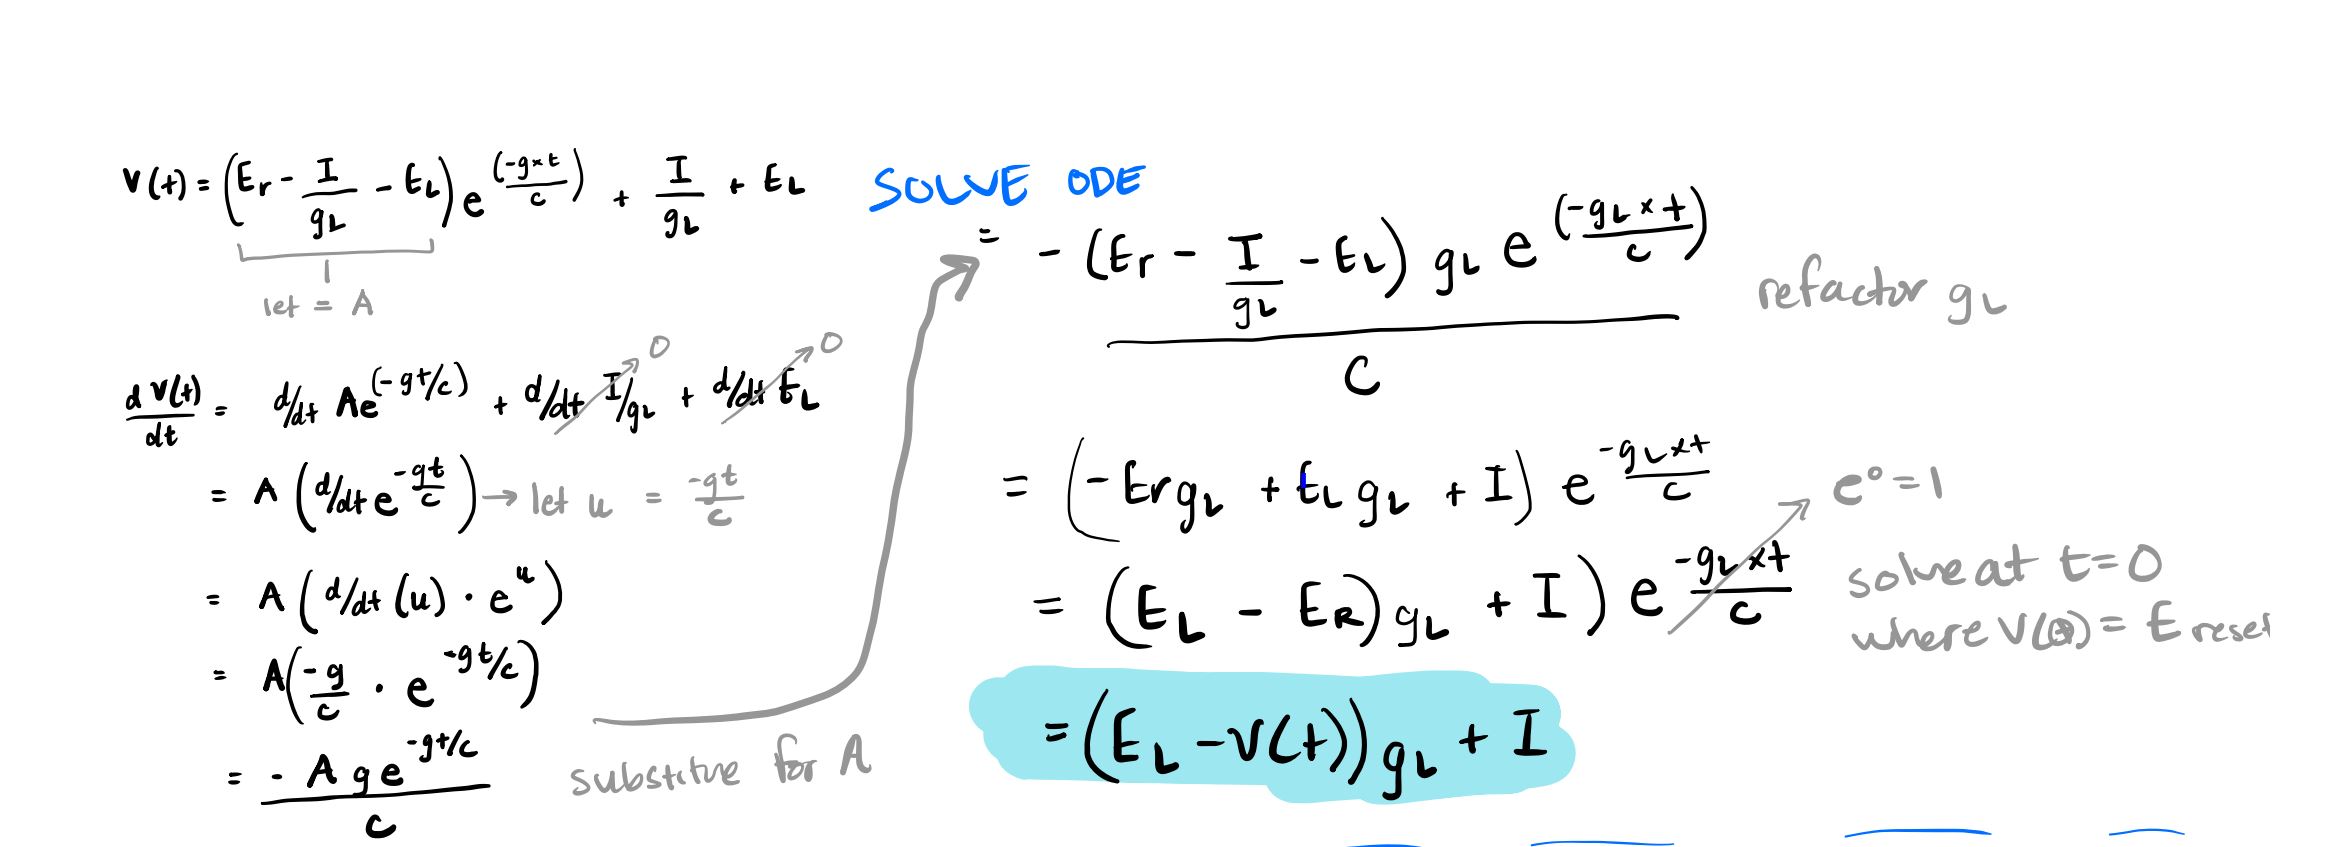 V(t) = (Er - I/gL - EL) e^(-g×t/c) + I/gL + EL
let = A
dV(t)/dt = d/dt Ae^(-gt/c) + d/dt I/gL → 0 + d/dt EL → 0
= A (d/dt e^(-gt/c)) → let u = -gt/c
= A (d/dt (u) · e^u)
= A(-g/c · e^(-gt/c))
= -A g e^(-gt/c) / c
substitue for A
SOLVE ODE
= -(Er - I/gL - EL) gL e^(-gL×t/c) / C
refactor gL
= (-ErgL + ELgL + I) e^(-gL×t/c)
= (EL - ER)gL + I) e^(-gL×t/c)
e^0 = 1
solve at t=0
where V(0) = E reset
= (EL - V(t))gL + I